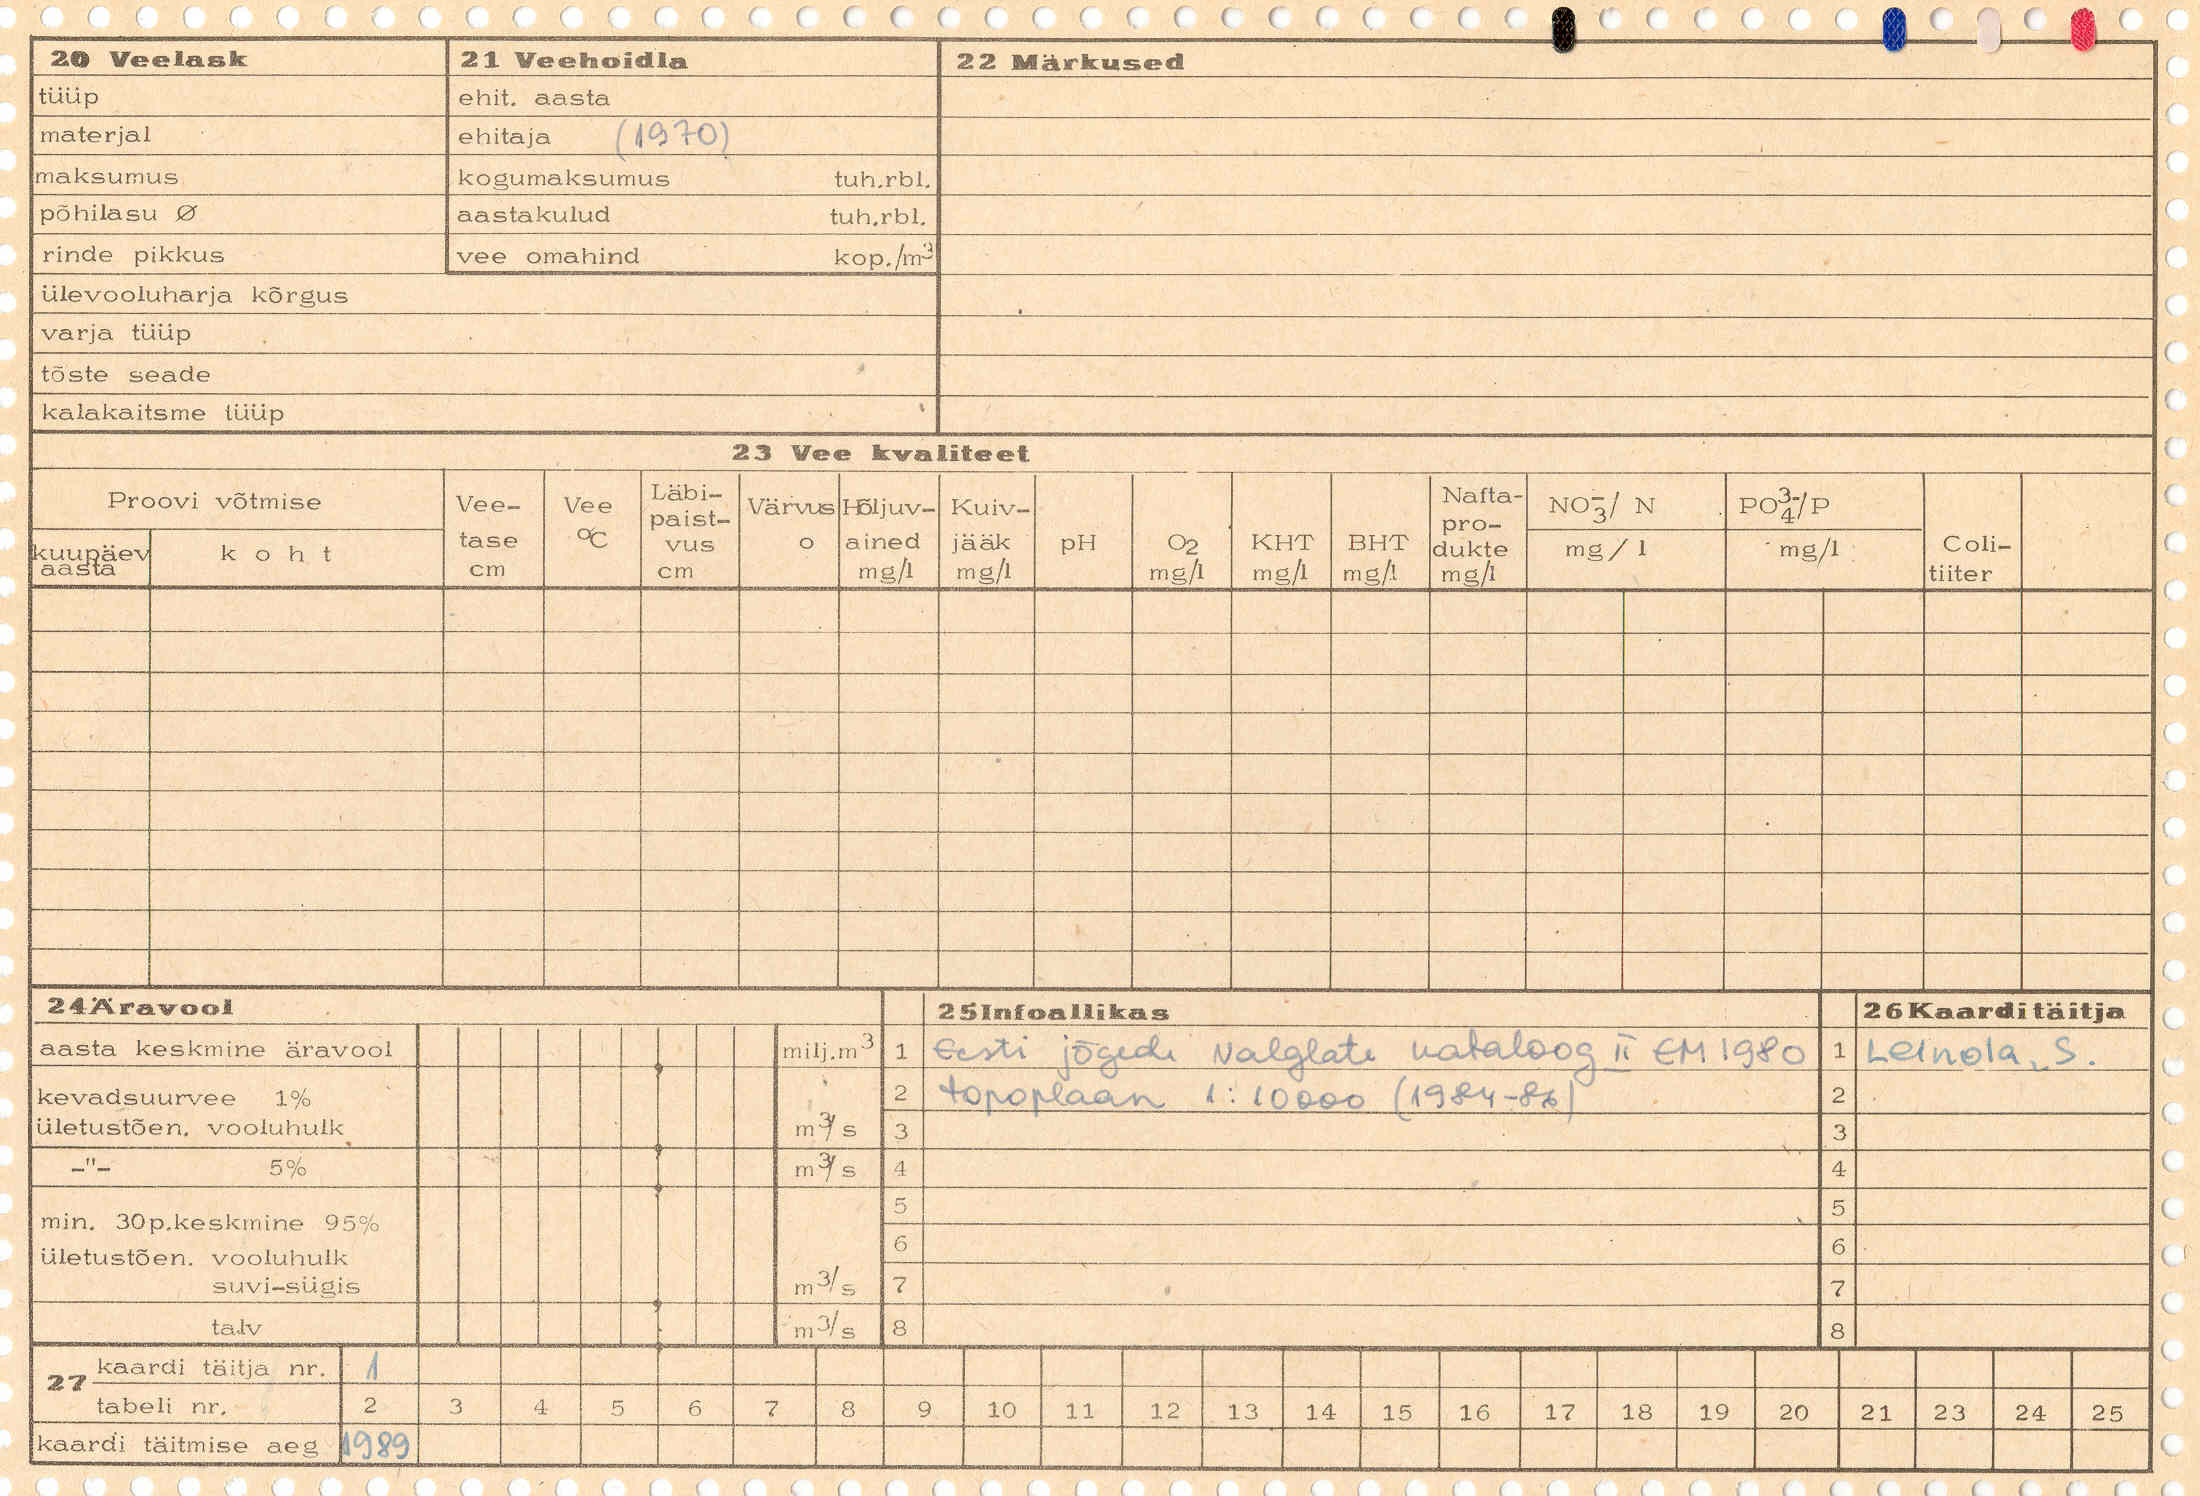 20 Veelask
tüüp
materjal
maksumus
põhilasu Ø
rinde pikkus
ülevooluharja kõrgus
varja tüüp
tõste seade
kalakaitsme tüüp
21 Veehoidla
ehit. aasta
ehitaja (1970)
kogumaksumus tuh.rbl.
aastakulud tuh.rbl.
vee omahind kop./m³
22 Märkused
23 Vee kvaliteet
Proovi võtmise
kuupäev
aasta
koht
Vee-
tase
cm
Vee
°C
Läbi-
paist-
vus
cm
Värvus
o
Hõljuv-
ained
mg/l
Kuiv-
jääk
mg/l
pH
O2
mg/l
KHT
mg/l
BHT
mg/l
Nafta-
pro-
dukte
mg/l
NO₃⁻/ N
mg/l
PO₄³⁻/P
mg/l
Coli-
tiiter
24 Äravool
aasta keskmine äravool milj.m³
kevadsuurvee 1%
ületustõen. vooluhulk m³/s
-"- 5% m³/s
min. 30p.keskmine 95%
ületustõen. vooluhulk
suvi-sügis m³/s
talv m³/s
25 Infoallikas
1 Eesti jõgede valglate kataloog II EM 1980
2 topoplaan 1:10000
3
4
5
6
7
8
26 Kaardi täitja
1 Leinola, S.
2
3
4
5
6
7
8
27
kaardi täitja nr. 1
tabeli nr. 2 3 4 5 6 7 8 9 10 11 12 13 14 15 16 17 18 19 20 21 23 24 25
kaardi täitmise aeg 1989